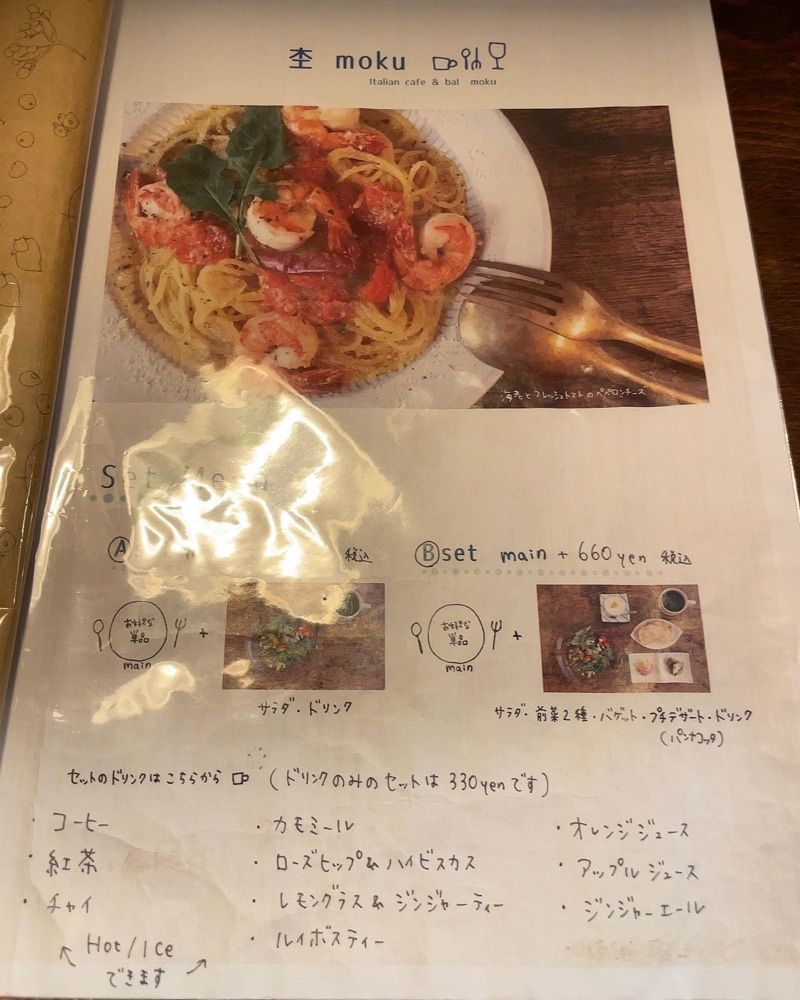 杢 moku
Italian cafe & bal moku
海老とフレッシュトマトのペペロンチーズ
Set Menu
Ⓐ 税込
Ⓑset main + 660yen 税込
お好きな
単品
main
+
お好きな
単品
main
+
サラダ・ドリンク
サラダ・前菜2種・バゲット・プチデザート・ドリンク
(パンナコッタ)
セットのドリンクはこちらから (ドリンクのみのセットは 330yenです)
・コーヒー
・カモミール
・オレンジジュース
・紅茶
・ローズヒップ&ハイビスカス
・アップルジュース
・チャイ
・レモングラス&ジンジャーティー
・ジンジャーエール
・ルイボスティー
Hot/Ice
できます